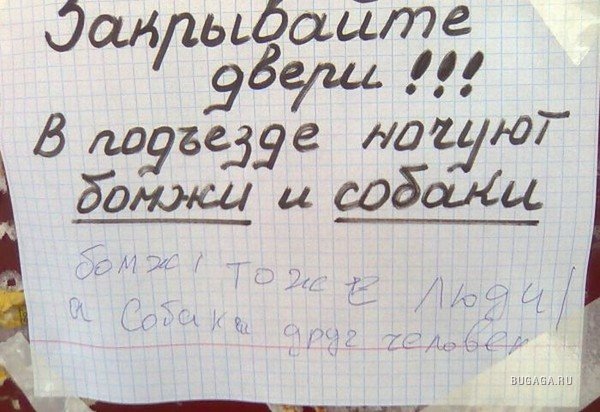 Закрывайте
двери!!!
В подъезде ночуют
бомжи и собаки
бомжі тоже люди!
а собака друг человек
BUGAGA.RU